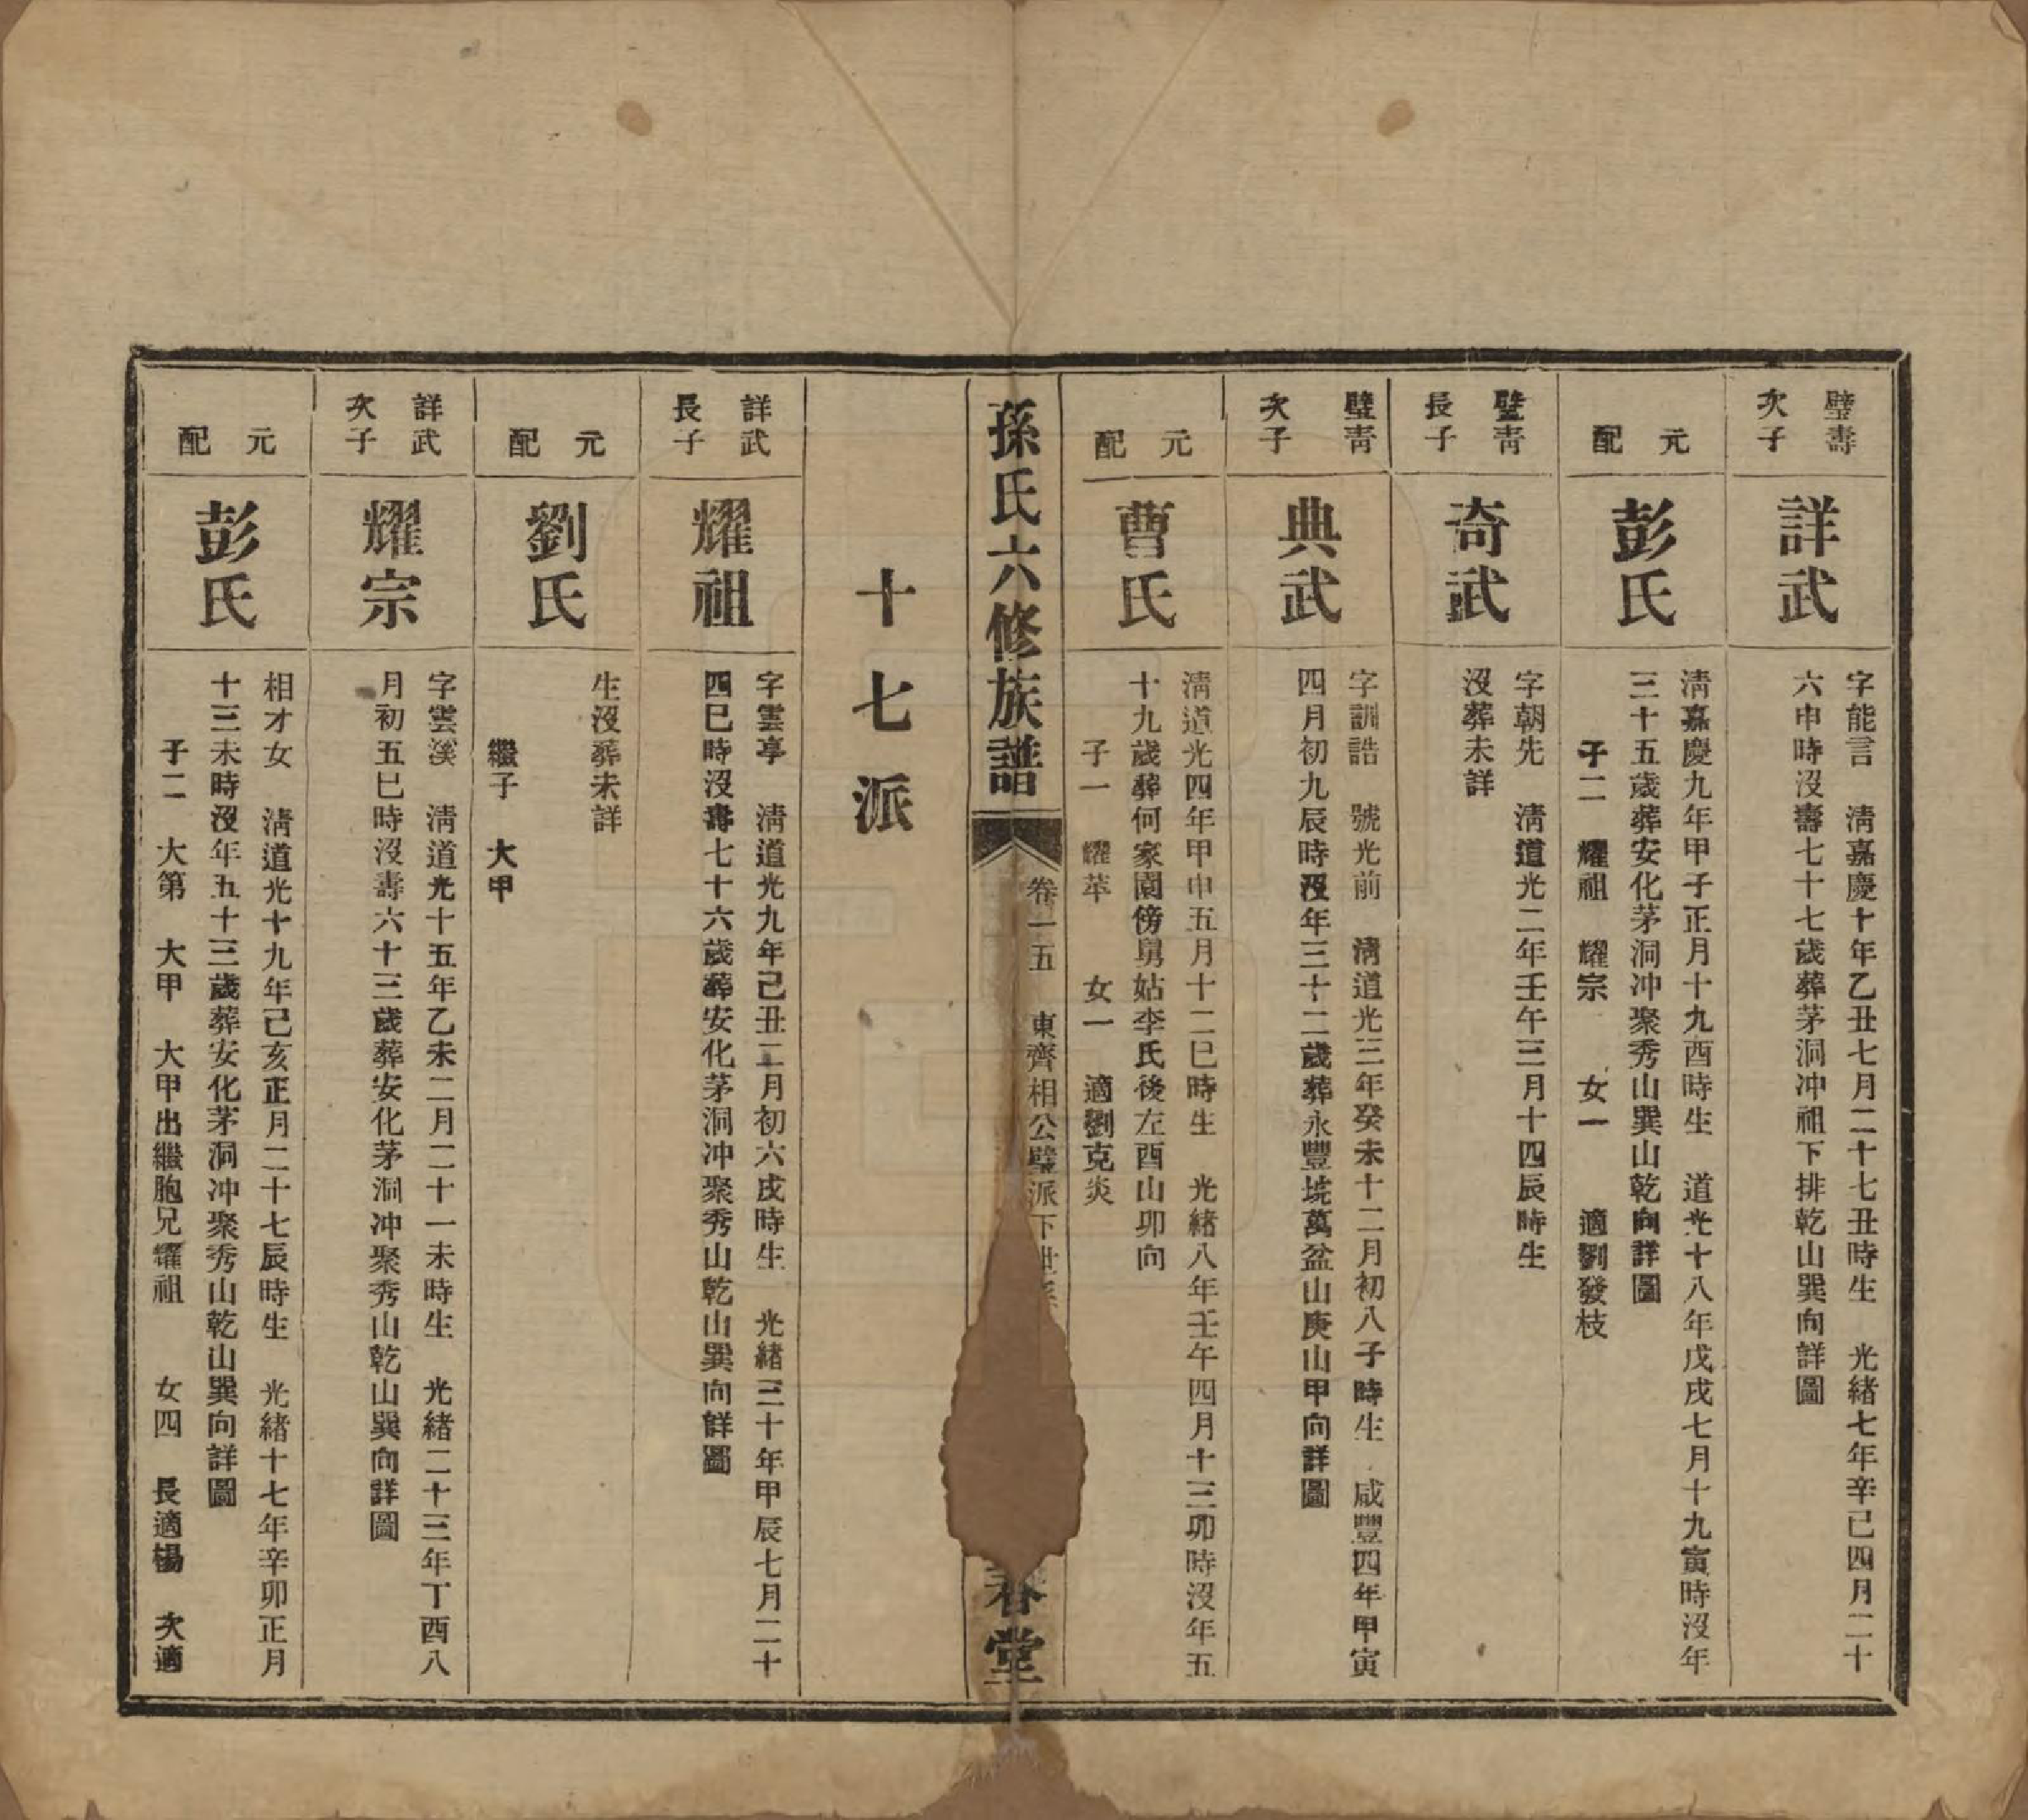 璧壽
次子
詳武
字能言　淸嘉慶十年乙丑七月二十七丑時生　光緒七年辛巳四月二十
六申時沒壽七十七歲葬茅洞冲祖下排乾山巽向詳圖
元
配
彭氏
淸嘉慶九年甲子正月十九酉時生　道光十八年戊戌七月十九寅時沒年
三十五歲葬安化茅洞冲聚秀山巽山乾向詳圖
子二　耀祖　耀宗　　女一　　適劉發枝
璧靑
長子
奇武
字朝先　淸道光二年壬午三月十四辰時生
沒葬未詳
璧靑
次子
典武
字訓誥　號光前　淸道光三年癸未十二月初八子時生　咸豐四年甲寅
四月初九辰時沒年三十二歲葬永豐垸萬盆山庚山甲向詳圖
元
配
曹氏
淸道光四年甲申五月十二巳時生　光緒八年壬午四月十三卯時沒年五
十九歲葬何家園傍舅姑李氏後左酉山卯向
子一　耀萃　　女一　適劉克炎
孫氏六修族譜
卷一五　東齊相公璧派下世系
春堂
十七派
詳武
長子
耀祖
字雲亭　淸道光九年己丑二月初六戌時生　光緒三十年甲辰七月二十
四巳時沒壽七十六歲葬安化茅洞冲聚秀山乾山巽向詳圖
元
配
劉氏
生沒葬未詳
繼子　大甲
詳武
次子
耀宗
字雲溪　淸道光十五年乙未二月二十一未時生　光緒二十三年丁酉八
月初五巳時沒壽六十三歲葬安化茅洞冲聚秀山乾山巽向詳圖
元
配
彭氏
相才女　淸道光十九年己亥正月二十七辰時生　光緒十七年辛卯正月
十三未時沒年五十三歲葬安化茅洞冲聚秀山乾山巽向詳圖
子二　大第　大甲　大甲出繼胞兄耀祖　　女四　長適楊　次適